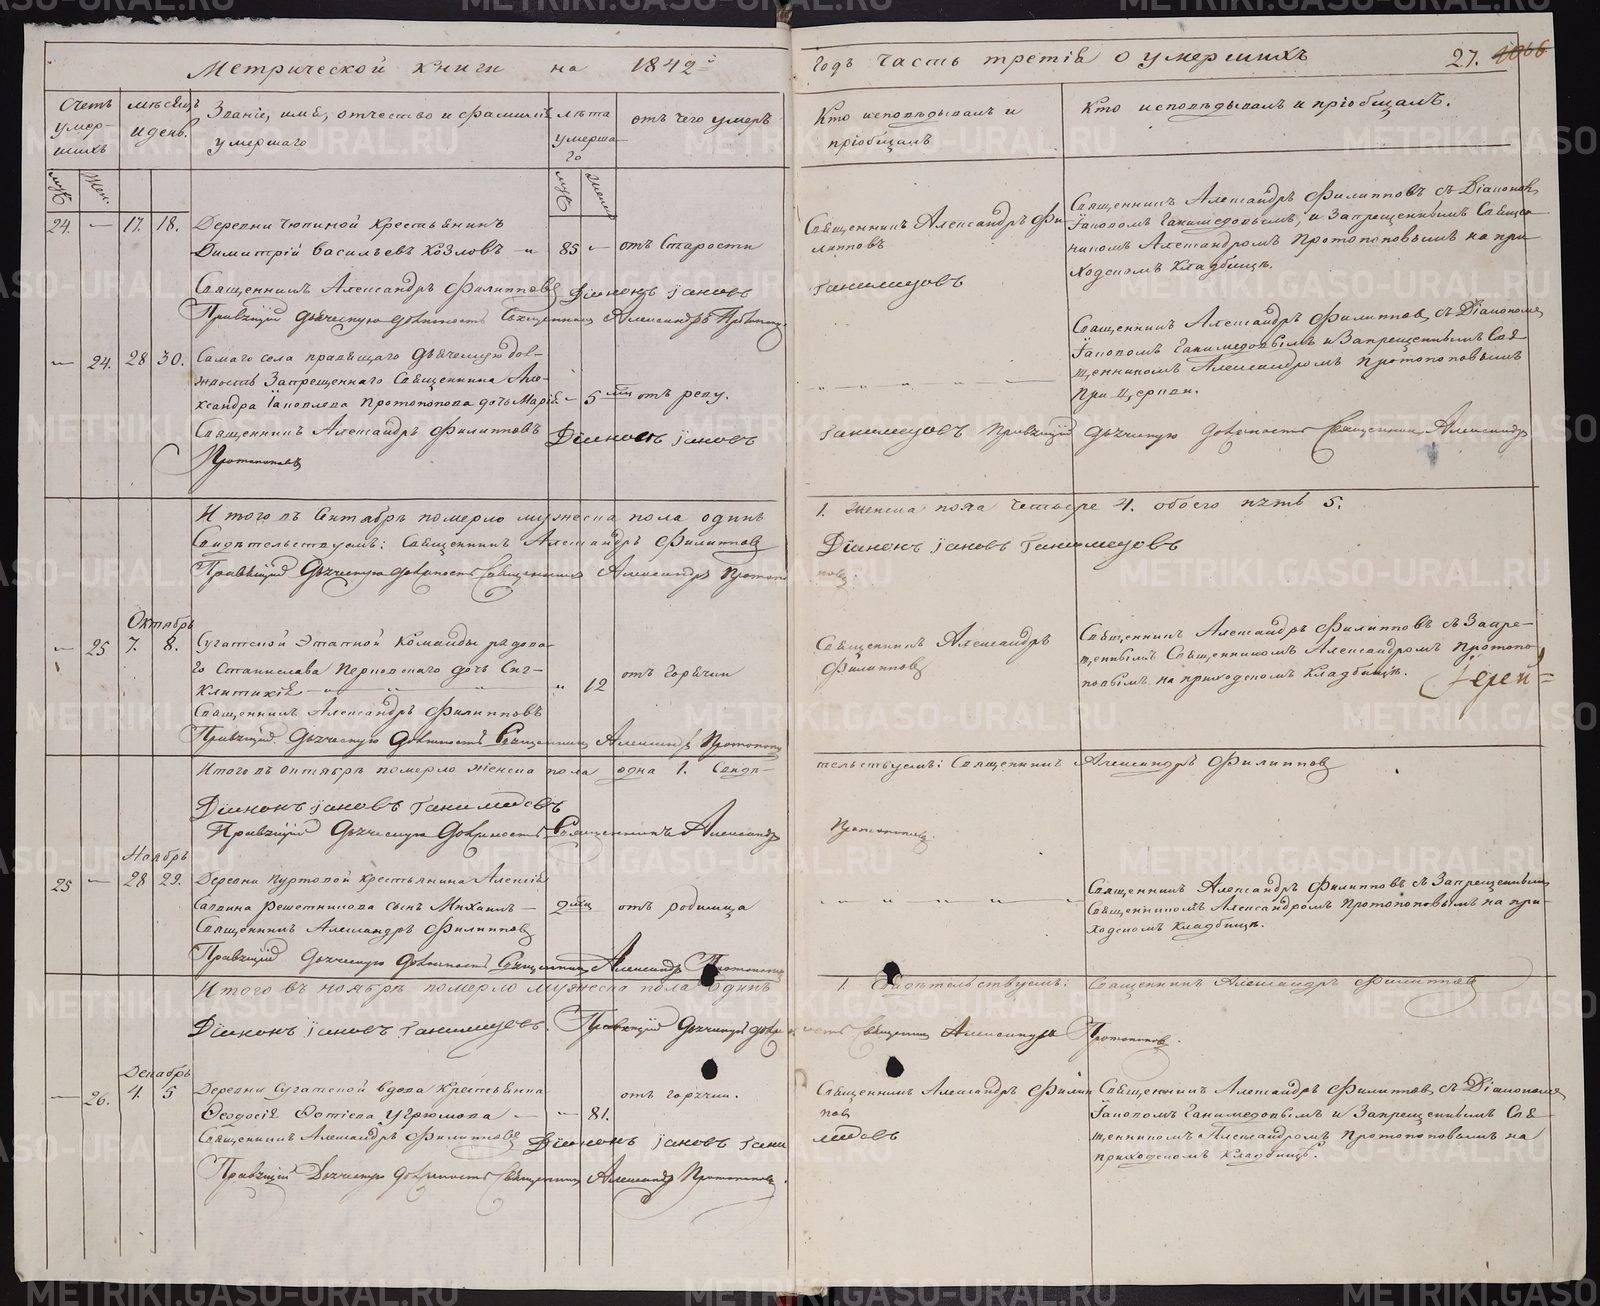 Метрической книги на 1842й
годъ часть третія о умершихъ 27.
Счетъ умер- шихъ
мѣсяцъ и день.
Званіе, имя, отчество и фамилія умершаго
лѣта умерша- го
отъ чего умеръ
Кто исповѣдывалъ и пріобщалъ
Кто исповѣдывалъ и пріобщалъ.
муж. жен. муж. женск.
24. — 17. 18. Деревни Тюпиной крестьянинъ
Димитрій Васильевъ Козловъ — 85 — отъ старости
Священникъ Александръ Филипповъ Діаконъ Іаковъ
Правящій дьяческую должность Священникъ Александръ
Священникъ Александръ Фи
липповъ
Ганимедовъ
Священникъ Александръ Филипповъ съ Діакономъ
Іаковомъ Ганимедовымъ, и Запрещеннымъ Священ-
никомъ Александромъ Протопоповымъ на при
ходскомъ кладбищѣ.
— 24. 28 30. Самаго села правящаго дьяческую дол-
жность Запрещеннаго Священника Але-
ксандра Іаковлева Протопопова дочь Марія — 5 отъ реву.
Священникъ Александръ Филипповъ Діаконъ Іаковъ
Протопоповъ
Священникъ Александръ Филипповъ съ Діакономъ
Іаковомъ Ганимедовымъ и Запрещеннымъ Свя
щенникомъ Александромъ Протопоповымъ
при церкви.
Ганимедовъ Правящій дьяческую должность Священникъ Александръ
Итого въ Сентябрѣ померло мужеска пола одинъ
1. женска пола четыре 4. обоего пять 5.
Свидѣтельствуемъ: Священникъ Александръ Филипповъ
Діаконъ Іаковъ Ганимедовъ
Правящій дьяческую должность Священникъ Александръ Протопо
повъ.
Октябрь
— 25 7. 8. Сугатской этапной команды рядова-
го Станислава дочь Син-
клитикія — " 12 отъ горячки
Священникъ Александръ Филипповъ
Правящій дьяческую должность Священникъ Александръ Протопоповъ
Священникъ Александръ
Филипповъ
Священникъ Александръ Филипповъ съ Запре-
щеннымъ Священникомъ Александромъ Протопо
повымъ на приходскомъ кладбищѣ. Іерей =
Итого въ октябрѣ померло женска пола одна 1. Свидѣ-
тельствуемъ: Священникъ Александръ Филипповъ
Діаконъ Іаковъ Ганимедовъ
Правящій дьяческую должность Священникъ Александръ
Протопоповъ.
Ноябрь
25 — 28 29. Деревни крестьянина Алексія
Саввина Решетникова сынъ Михаилъ — 2 отъ родимца
Священникъ Александръ Филипповъ
Правящій дьяческую должность Священникъ Александръ Протопоповъ
Священникъ Александръ Филипповъ съ Запрещеннымъ
Священникомъ Александромъ Протопоповымъ на при-
ходскомъ кладбищѣ.
Итого въ ноябрѣ померло мужеска пола одинъ
1. Свидѣтельствуемъ: Священникъ Александръ Филипповъ
Діаконъ Іаковъ Ганимедовъ. Правящій дьяческую должность Священникъ Александръ Протопоповъ.
Декабрь
— 26. 4. 5 Деревни Сугатской вдова крестьянка
Ѳеодосія Фотіева Угрюмова — — 81. отъ горячки.
Священникъ Александръ Филипповъ Діаконъ Іаковъ Гани
Правящій дьяческую должность Священникъ Александръ Протопоповъ.
Священникъ Александръ Филип
повъ
медовъ
Священникъ Александръ Филипповъ съ Діакономъ
Іаковомъ Ганимедовымъ и Запрещеннымъ Свя
щенникомъ Александромъ Протопоповымъ на
приходскомъ кладбищѣ.
METRIKI.GASO-URAL.RU